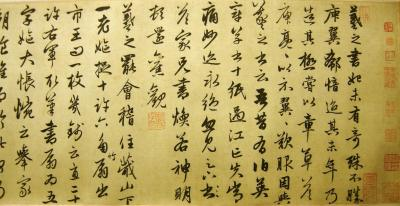 羲之書初未有奇殊不勝
庾翼郗愔迨其末年乃
造其極嘗以章草答
庾亮亮以示翼翼歎服因與
羲之書云吾昔有伯英
章草十紙過江亡失常
痛妙迹永絕忽見足下
答家兄書煥若神明
頓還舊觀
羲之罷會稽住蕺山下
一老嫗捉十許六角竹扇出
市王曰一枚幾錢云直二十
許右軍取筆書扇為五
字嫗大悵惋云舉家